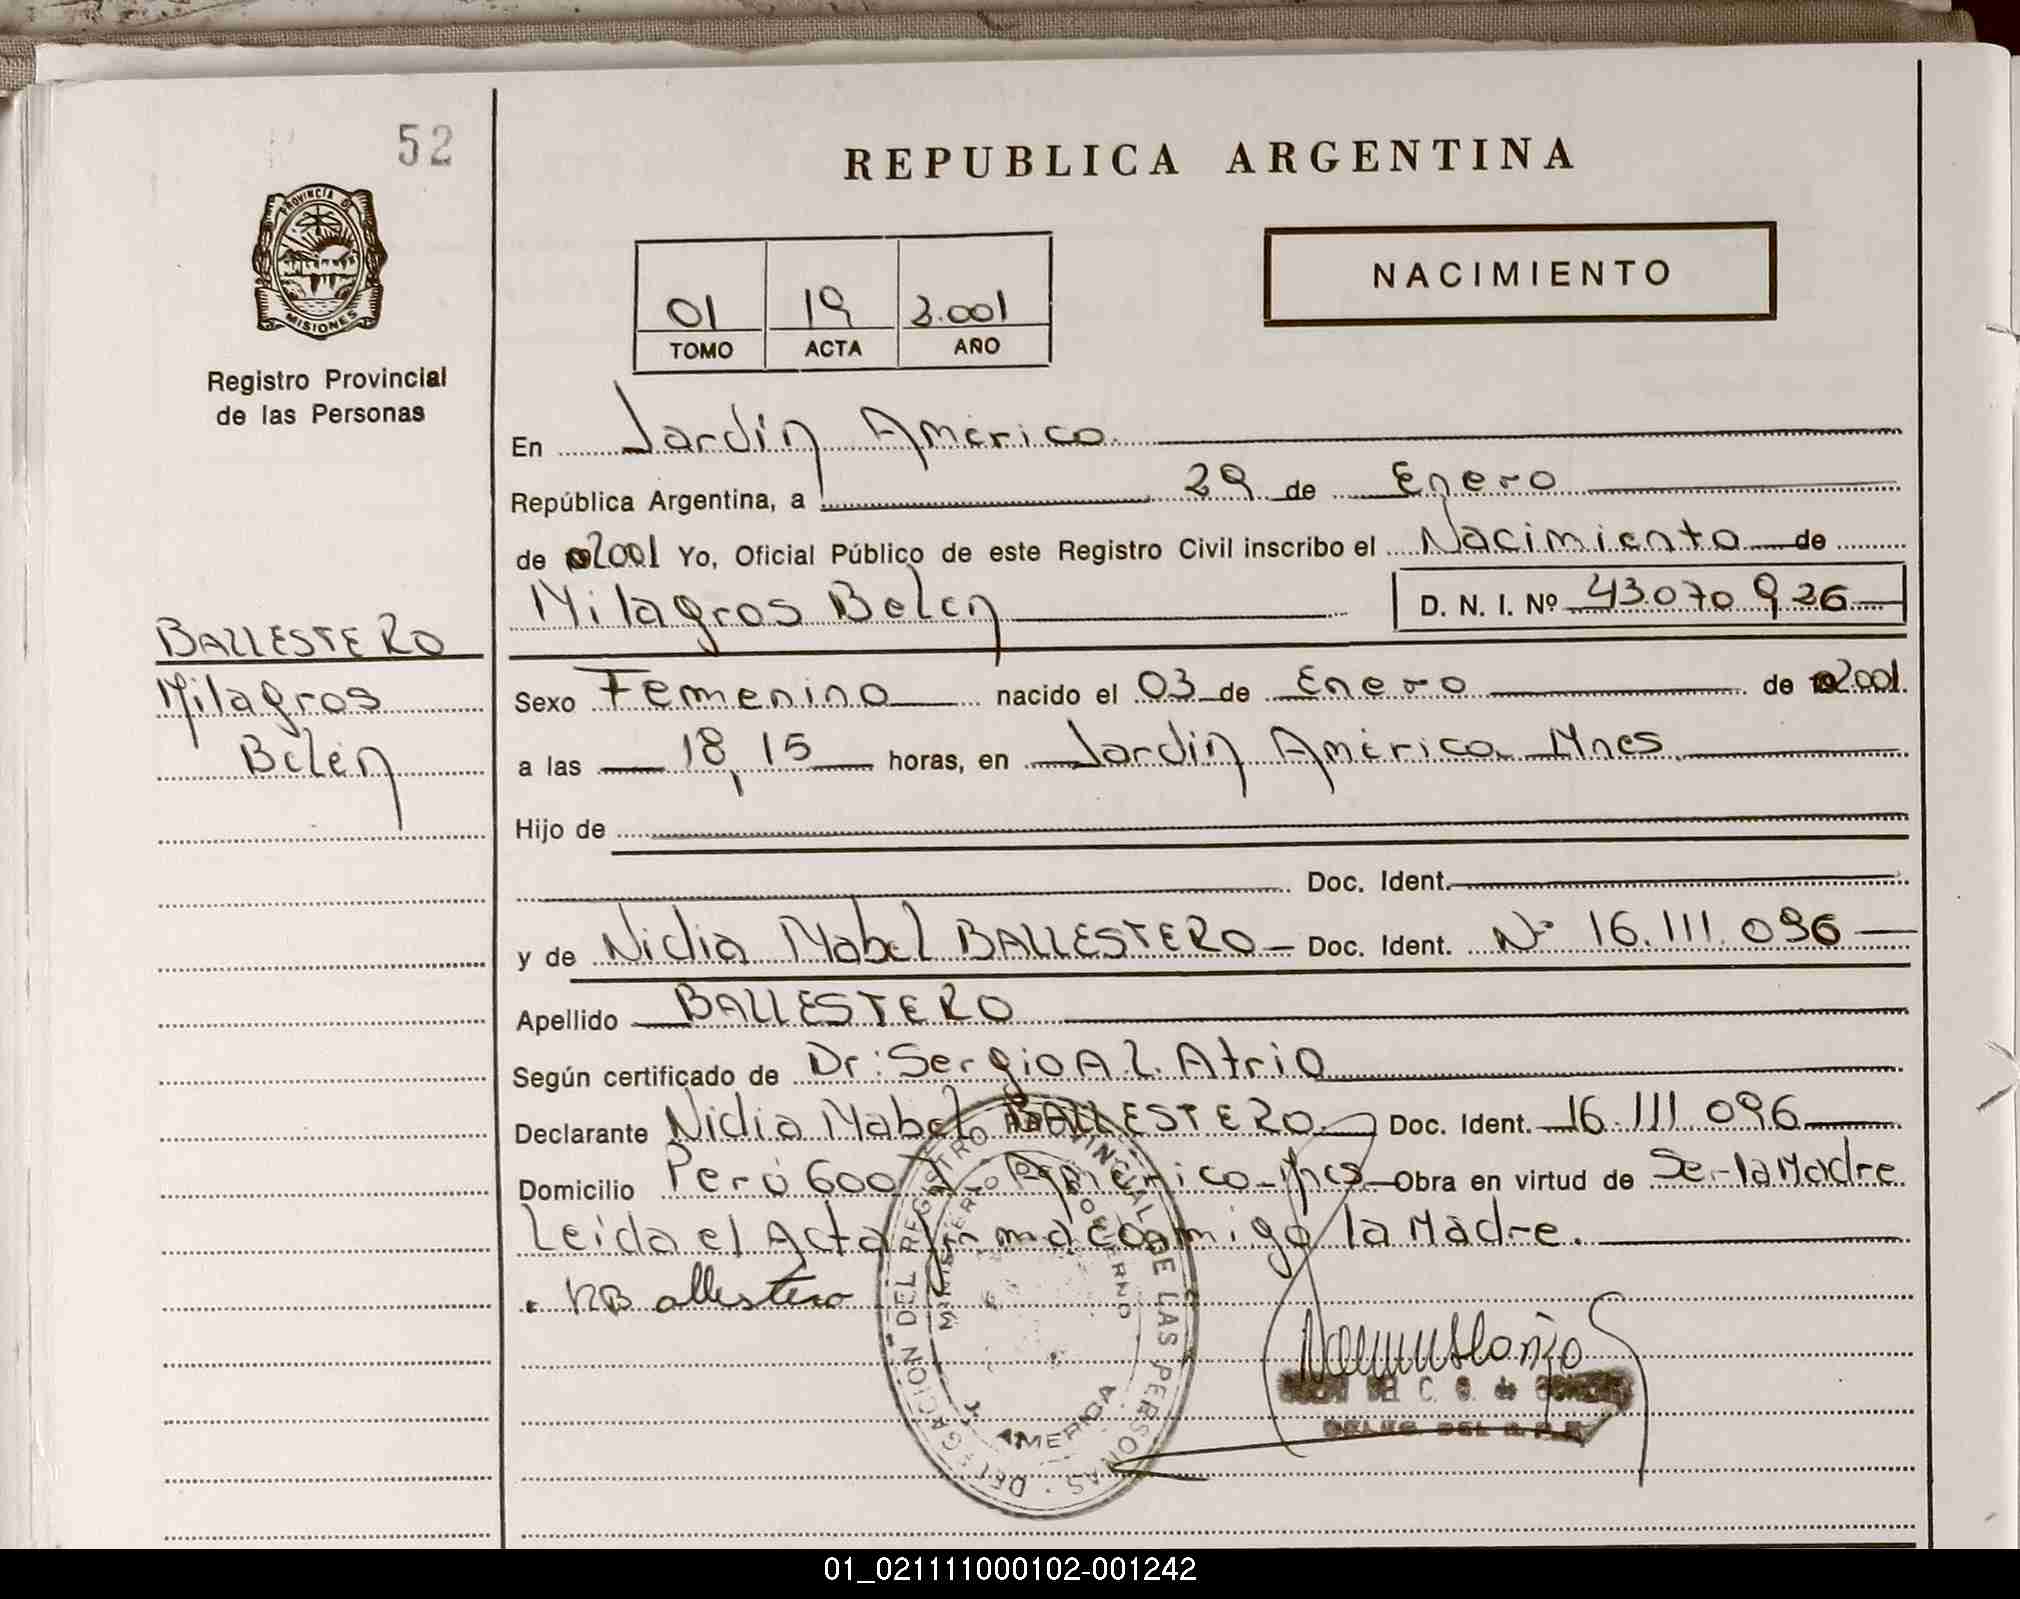 52
REPUBLICA ARGENTINA
PROVINCIA DE
MISIONES
Registro Provincial
de las Personas
01 19 2.001
TOMO ACTA AÑO
NACIMIENTO
En Jardín América
República Argentina, a 29 de Enero
de 2001 Yo, Oficial Público de este Registro Civil inscribo el Nacimiento de
Milagros Belen D. N. I. Nº 43.070 926
BALLESTERO
Milagros
Belén
Sexo Femenino nacido el 03 de Enero de 2001
a las 18,15 horas, en Jardín América Mnes
Hijo de
Doc. Ident.
y de Nidia Mabel BALLESTERO Doc. Ident. Nº 16.111.096
Apellido BALLESTERO
Según certificado de Dr: Sergio A. L. Atrio
Declarante Nidia Mabel BALLESTERO Doc. Ident. 16.111 096
Domicilio Perú 600 J. América Mnes Obra en virtud de Ser la Madre
Leida el Acta firma conmigo la Madre.
NBallestero
DELEGACION DEL REGISTRO PROVINCIAL DE LAS PERSONAS
MINISTERIO DE GOBIERNO
J. AMERICA
DEL C. G. de
01_021111000102-001242